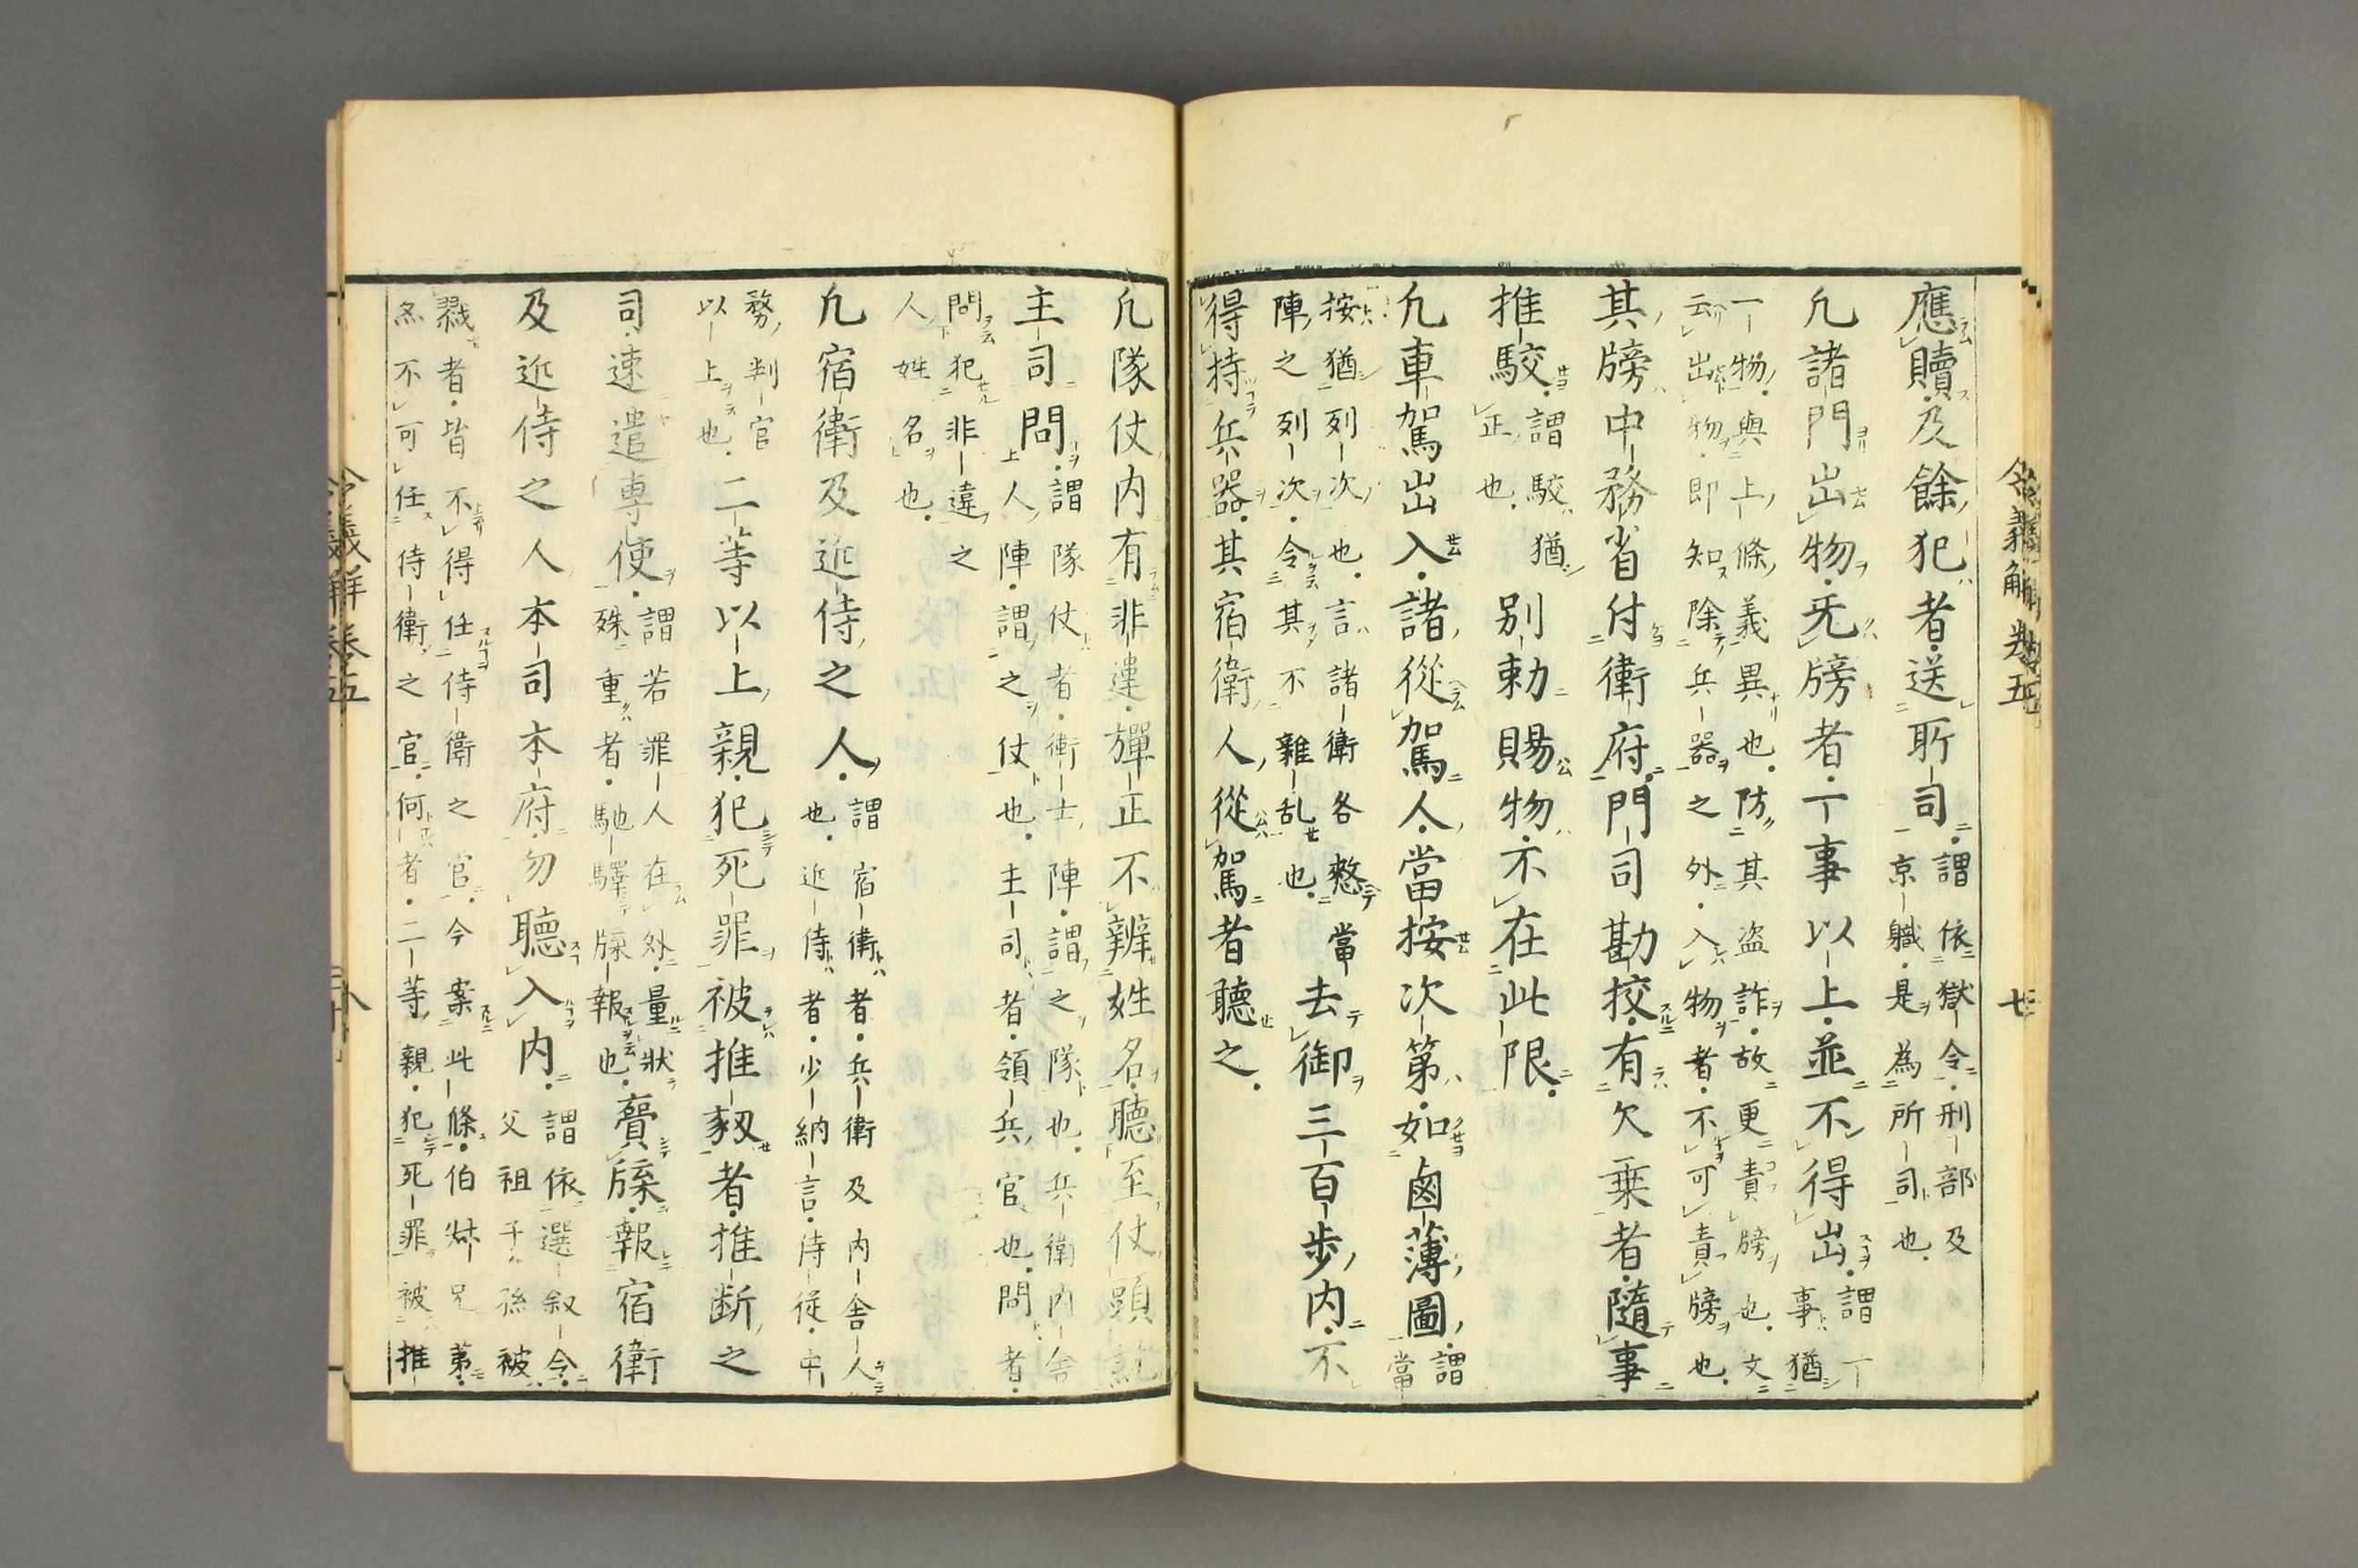 應贖及餘犯者送所司謂依獄令刑部及
京職是為所司也
凢諸門出物旡牓者一事以上並不得出謂一
事猶
一物與上條義異也防其盗詐故更責牓也文
云出物即知除兵器之外入物者不可責牓也
其牓中務省付衛府門司勘挍有欠乗者隨事
推駮謂駮猶
正也
別勅賜物不在此限
凢車駕出入諸從駕人當按次第如鹵薄圖謂
當
按猶列次也言諸衛各整當
陣之列次令其不雜乱也
去御三百歩内不
得持兵器其宿衛人從駕者聴之
令義解卷五
七
凢隊仗内有非違弾正不辨姓名聴至仗頭就
主司問謂隊仗者衛士陣謂之隊也兵衛内舎
人陣謂之仗也主司者領兵官也問者
問犯非違之
人姓名也
凢宿衛及近侍之人謂宿衛者兵衛及内舎人
也近侍者少納言侍従中
務判官
以上也
二等以上親犯死罪被推劾者推断之
司速遣専使謂若罪人在外量状
殊重者馳驛牒報也
賷牒報宿衛
及近侍之人本司本府勿聴入内謂依選叙令
父祖子孫被
戮者皆不得任侍衛之官今案此條伯叔兄弟
不可任侍衛之官何者二等親犯死罪被推
令義解卷五
八